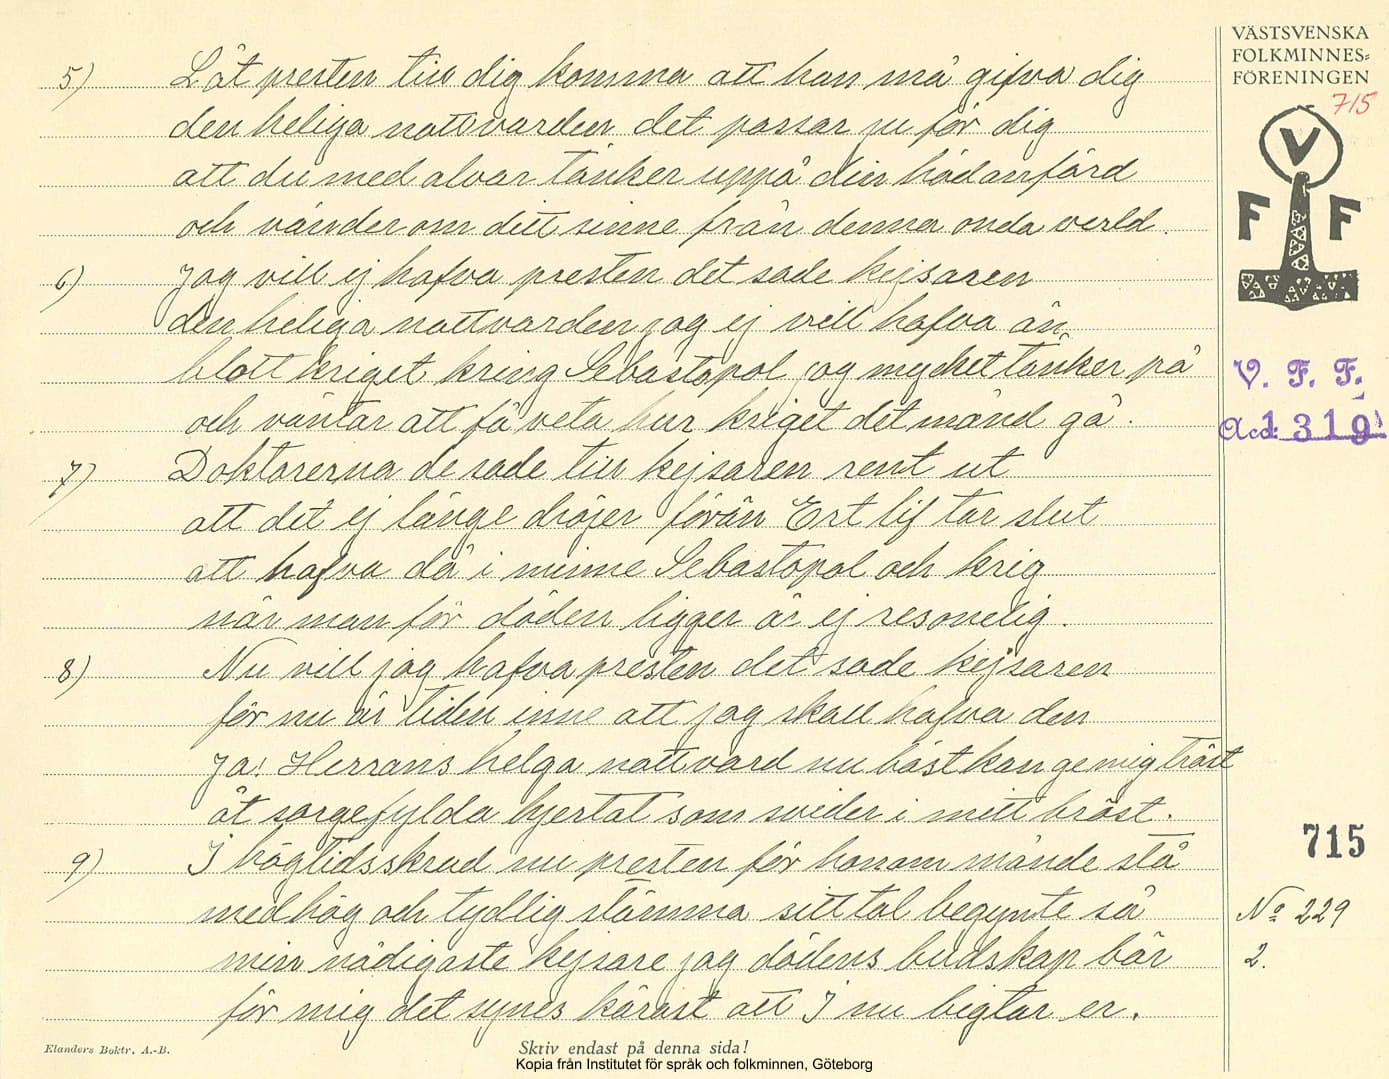 VÄSTSVENSKA
FOLKMINNES=
FÖRENINGEN
715
V
F F
V. F. F.
Acc: 1319
5) Låt presten till dig komma att han må gifva dig
den heliga nattvarden det passar ju för dig
att du med alvar tänker uppå din hädanfärd
och vänder om ditt sinne från denna onda verld.
6) Jag vill ej hafva presten det sade kejsaren
den heliga nattvarden jag ej vill hafva än
blott kriget kring Sebastopol jag mycket tänker på
och väntar att få veta hur kriget det månd gå.
7) Doktorerna de sade till kejsaren rent ut
att det ej länge dröjer förän Ert lif tar slut
att hafva då i minne Sebastopol och krig
när man för döden ligger är ej resonelig.
8) Nu vill jag hafva presten det sade kejsaren
för nu är tiden inne att jag skall hafva den
Ja! Herrans helga nattvard nu bäst kan ge mig tröst
åt sorgefylda hjertat som svider i mitt bröst.
9) I högtidsskrud nu presten för honom månde stå
med hög och tydlig stämma sitt tal begynte så
min nådigaste kejsare jag dödens budskap bär
för mig det synes kärast att I nu bigtar er.
715
No 229
2.
Elanders Boktr. A.-B.
Skriv endast på denna sida!
Kopia från Institutet för språk och folkminnen, Göteborg